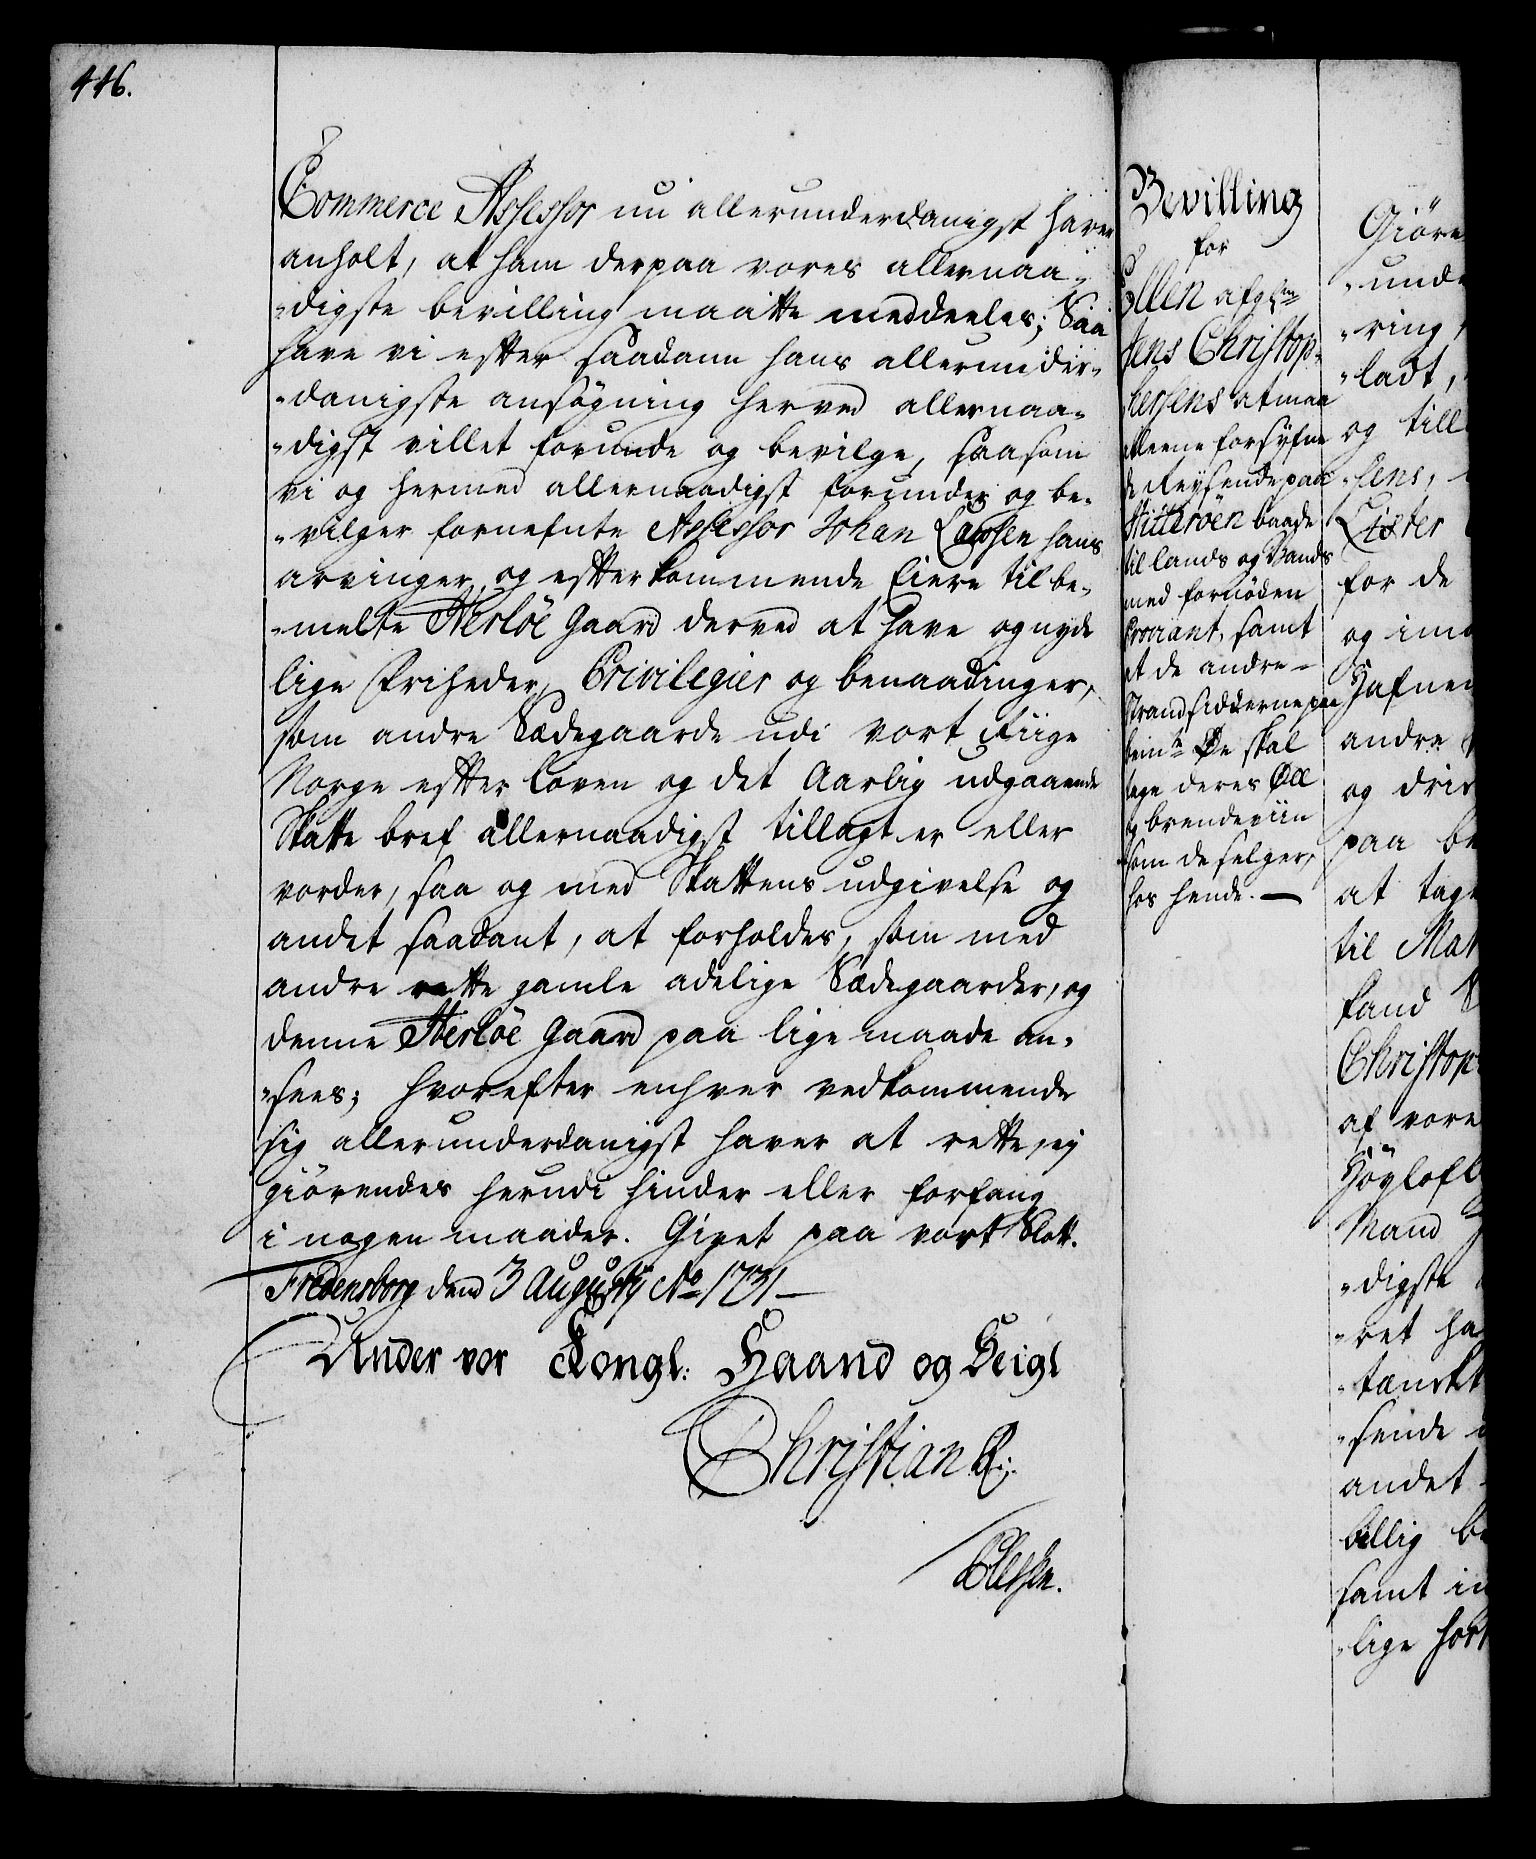 446.
Commerce Assessor nu allerunderdanigst haver
anholt, at ham derpaa vores allernaa-
-digste bevilling maatte meddeeles; Saa
have vi efter saadann hans allerunder-
-danigste ansøgning herved allernaa-
-digst villet forunde og bevilge, saasom
vi og hermed allernaadigst forunder og be-
-vilger fornefnte Assessor Johan Lassen hans
arvinger og efterkommende Eiere til be-
-melte Herløe Gaard derved at have og nyde
lige friheder, Privilegier og benaadinger,
som andre Sædegaarde udi vort Riige
Norge efter loven og det Aarlig udgaaende
Skatte bref allernaadigst tillagt er eller
vorder, saa og med Skattens udgivelse og
andet saadant, at forholdes, som med
andre rette gamle adelige Sædegaarder, og
denne Herløe Gaard paa lige maade an-
-sees; hvorefter enhver vedkommende
sig allerunderdanigst haver at rette, ej
giørendes herudi hinder eller forfang
i nogen maader. Givet paa vort Slott.
Fredensborg dend 3 Augustij Ao 1731
Under vor Kongl: Haand og Seigl
Christian R:
Bevilling
for
Ellen afg:ne
Jens Christop-
hersens at maa
alleene forsyfne
de Reysende paa
Hitterøen baade
til lands og Vands
med fornøden
Proviant, samt
at de andre
Strandsidderne paa
bem:te Øe skal
tage deres Øll
og brendeviin
som de selger,
hos hende.
Giøre
-unde
-ring,
-ladt,
og till
-sens,
Lister
for de
og im
Hafne
andre
og dri
paa be
at tage
til Mat
fand
Christop
af vore
Høylofl
Mand
-digste
-ret ha
-tænckt
-sende
andet
billig be
samt in
-lige hort